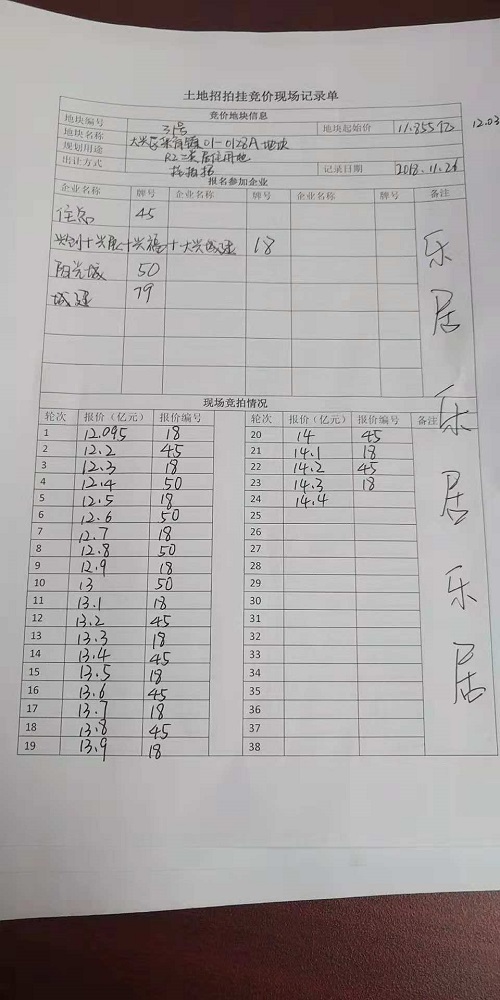 土地招拍挂竞价现场记录单
竞价地块信息
地块编号 31号 地块起始价 11.855亿 12.03
地块名称 大兴区采育镇01-0128A地块
规划用途 R2二类居住用地
出让方式 挂拍招 记录日期 2018.11.26
报名参加企业
企业名称 牌号 企业名称 牌号 企业名称 牌号 备注
住总 45
兴创+兴展+兴福+大兴城建 18
阳光城 50
城建 79
乐居 乐居 乐居
现场竞拍情况
轮次 报价（亿元） 报价编号 轮次 报价（亿元） 报价编号 备注
1 12.095 18 20 14 45
2 12.2 45 21 14.1 18
3 12.3 18 22 14.2 45
4 12.4 50 23 14.3 18
5 12.5 18 24 14.4
6 12.6 50 25
7 12.7 18 26
8 12.8 50 27
9 12.9 18 28
10 13 50 29
11 13.1 18 30
12 13.2 45 31
13 13.3 18 32
14 13.4 45 33
15 13.5 18 34
16 13.6 45 35
17 13.7 18 36
18 13.8 45 37
19 13.9 18 38